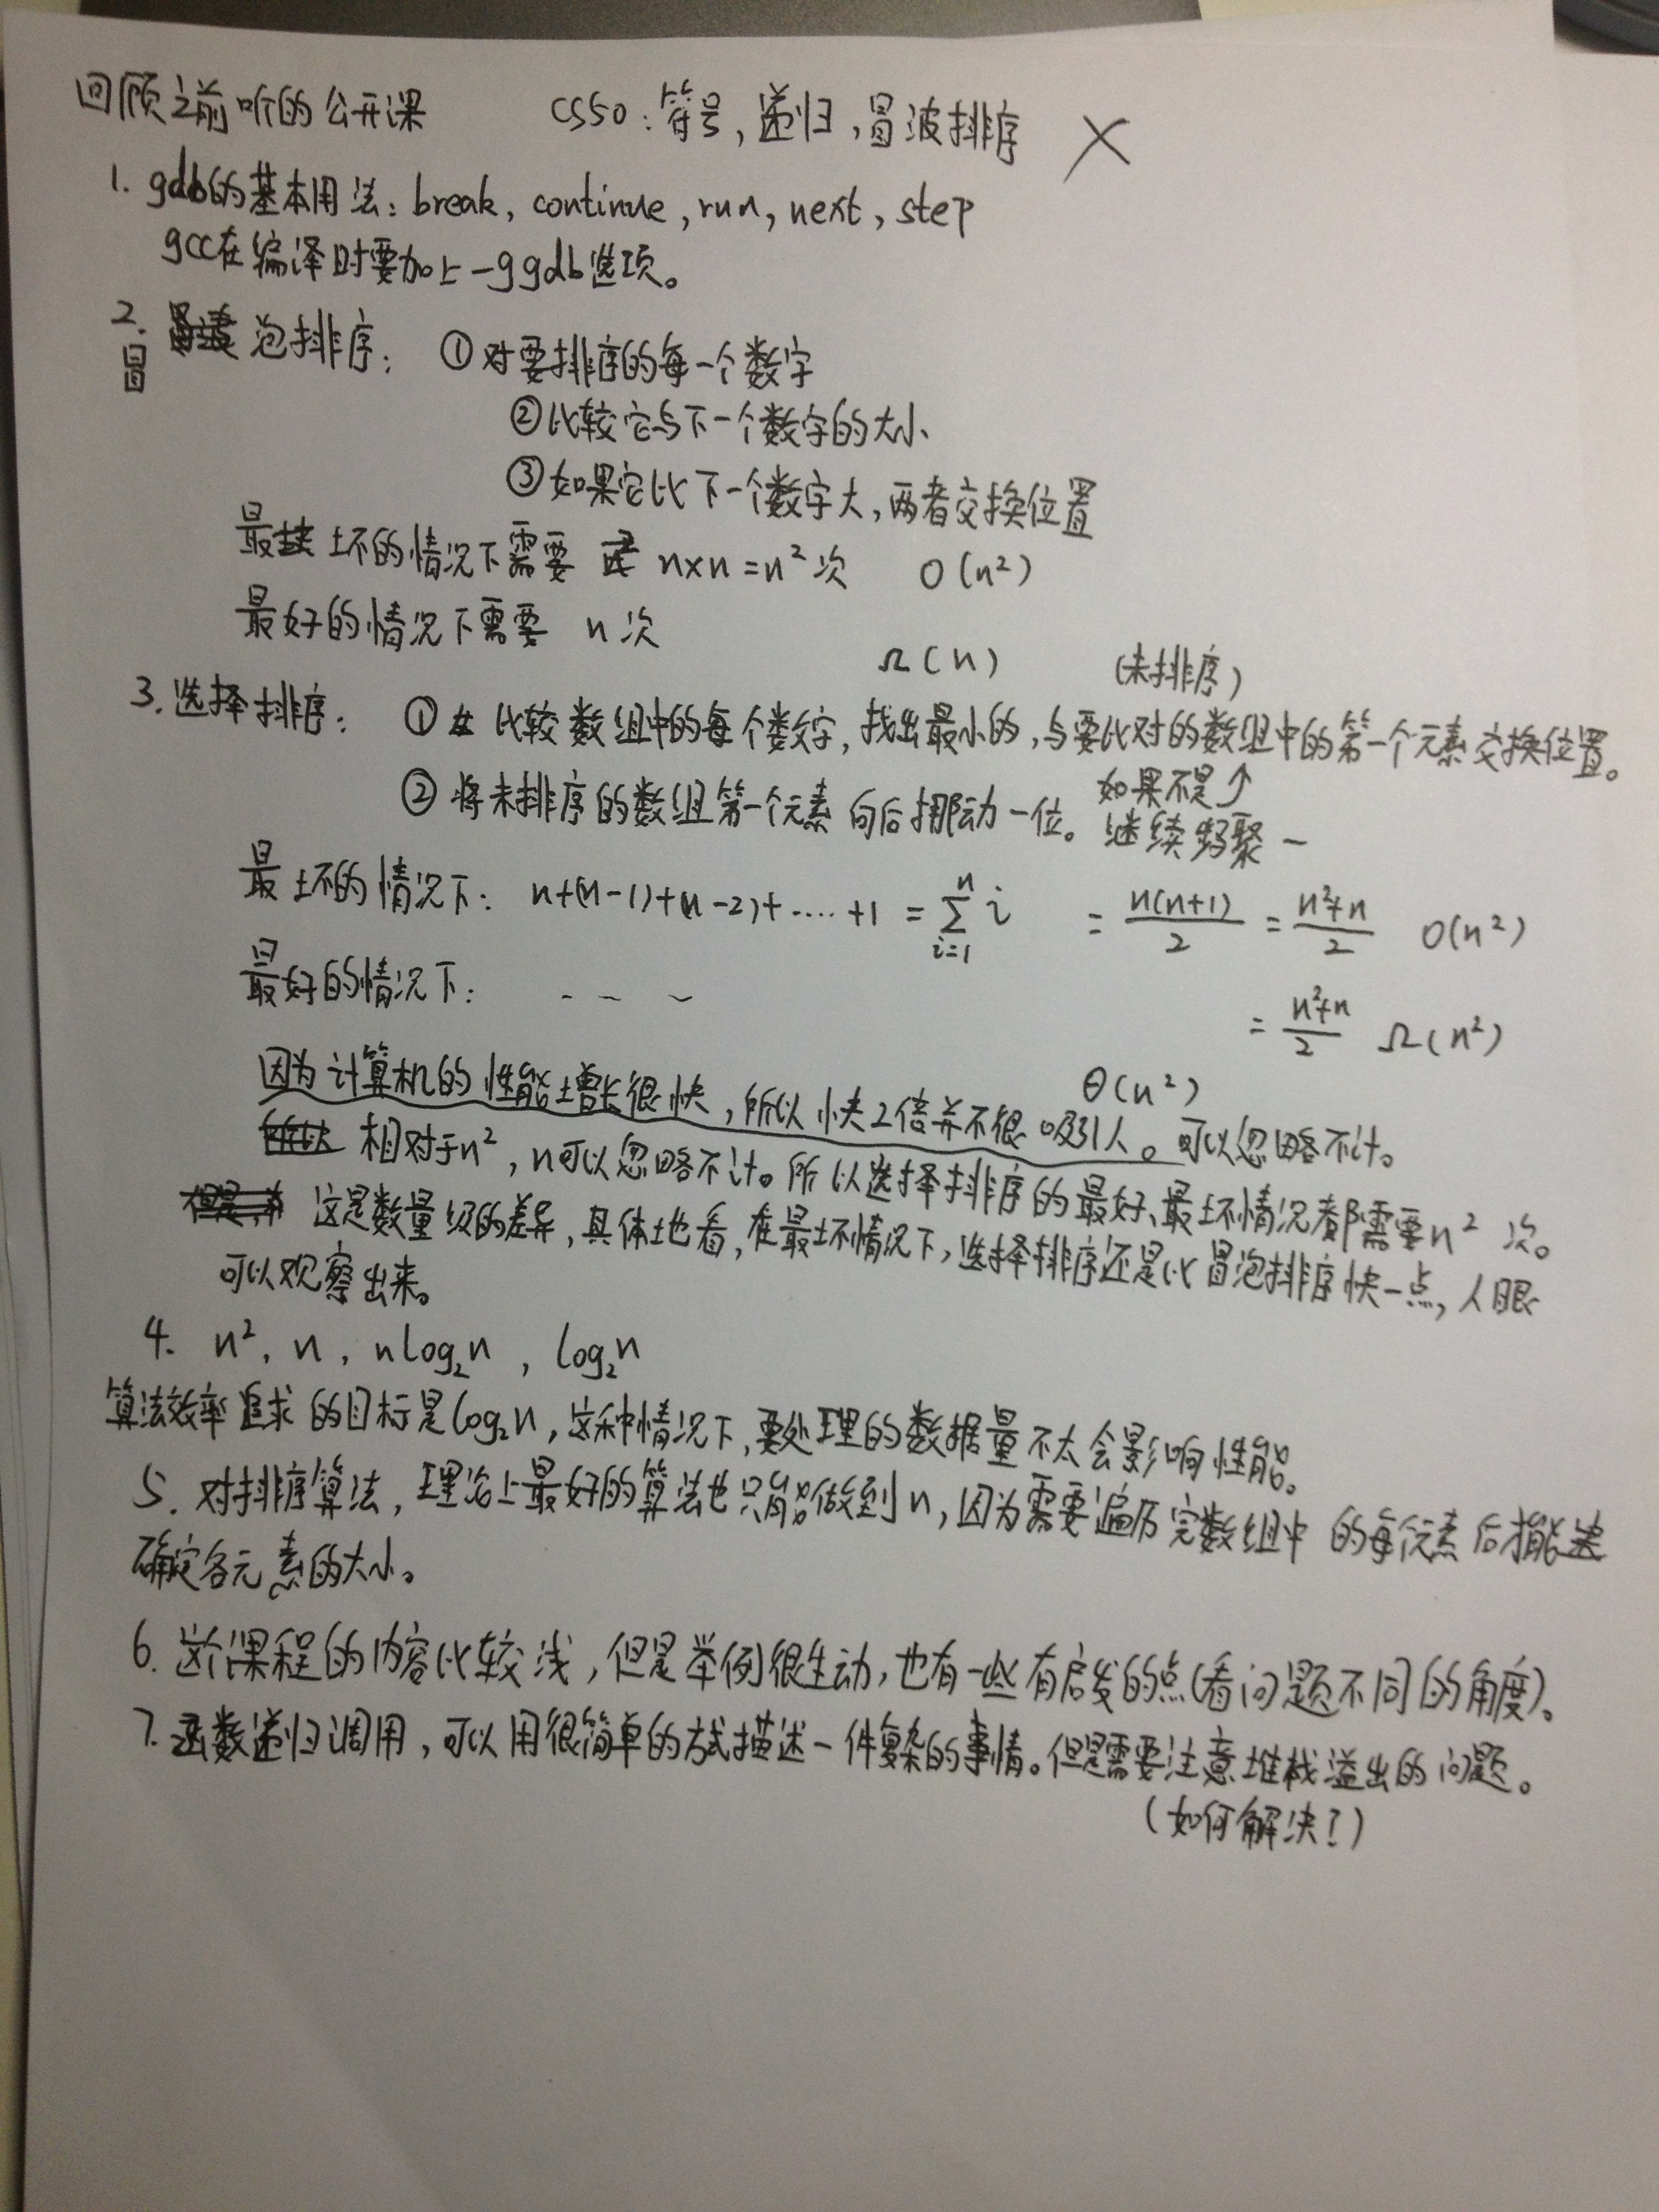 回顾之前听的公开课 CS50:符号,递归,冒波排序 ×
1. gdb的基本用法:break, continue, run, next, step
gcc在编译时要加上-ggdb选项。
2. 冒泡排序: ①对要排序的每一个数字
②比较它与下一个数字的大小
③如果它比下一个数字大,两者交换位置
最坏的情况下需要 n×n=n²次 O(n²)
最好的情况下需要 n次
Ω(n) (未排序)
3. 选择排序: ① 比较数组中的每个数字,找出最小的,与要比对的数组中的第一个元素交换位置。
② 将未排序的数组第一个元素向后挪动一位。如果不是↑
继续 一
最坏的情况下: n+(n-1)+(n-2)+....+1 = ∑_{i=1}^{n} i = n(n+1)/2 = n²+n/2 O(n²)
最好的情况下: - - ~ = n²+n/2 Ω(n²)
θ(n²)
因为计算机的性能增长很快,所以快2倍并不很吸引人。可以忽略不计。
相对于n²,n可以忽略不计。所以选择排序的最好、最坏情况都需要n²次。
这是数量级的差异,具体地看,在最坏情况下,选择排序还是比冒泡排序快一点,人眼
可以观察出来。
4. n², n, nlog₂n, log₂n
算法效率追求的目标是log₂n,这种情况下,要处理的数据量不太会影响性能。
5. 对排序算法,理论上最好的算法也只能做到n,因为需要遍历完数组中的每个元素后才能
确定各元素的大小。
6. 这个课程的内容比较浅,但是举例很生动,也有一些有启发的点(看问题不同的角度)。
7. 函数递归调用,可以用很简单的方式描述一件复杂的事情。但是需要注意堆栈溢出的问题。
(如何解决?)